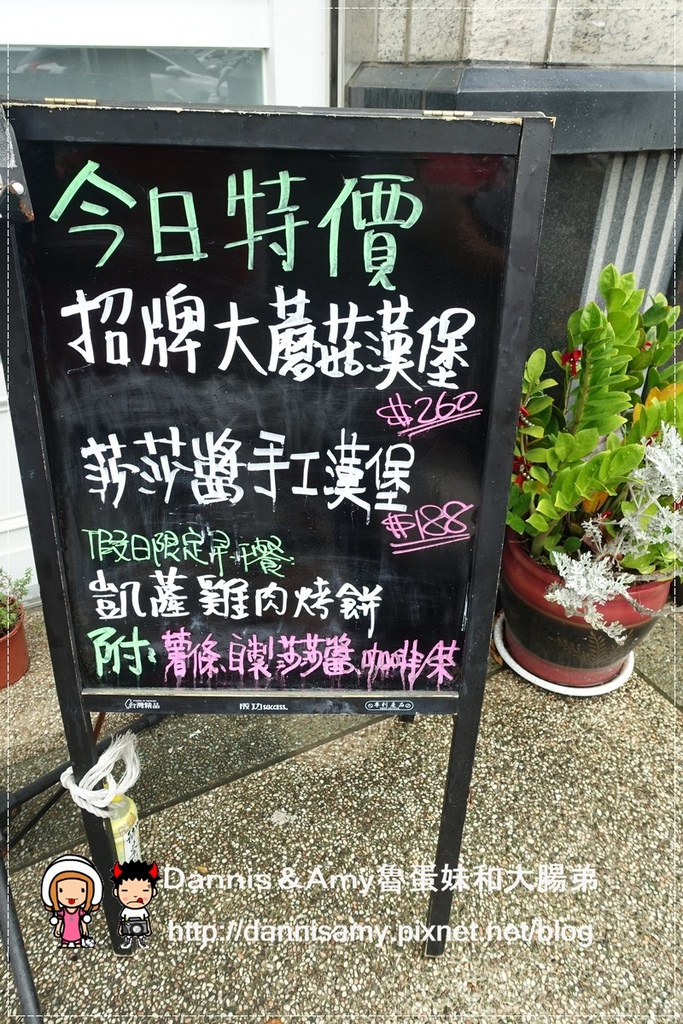 今日特價
招牌大蘑菇漢堡
$260
莎莎醬手工漢堡
$188
假日限定早午餐
凱薩雞肉烤餅
附:薯條、自製莎莎醬、咖啡/茶
台灣精品 成功 success. 專利產品
Dannis & Amy魯蛋妹和大腸弟
http://dannisamy.pixnet.net/blog